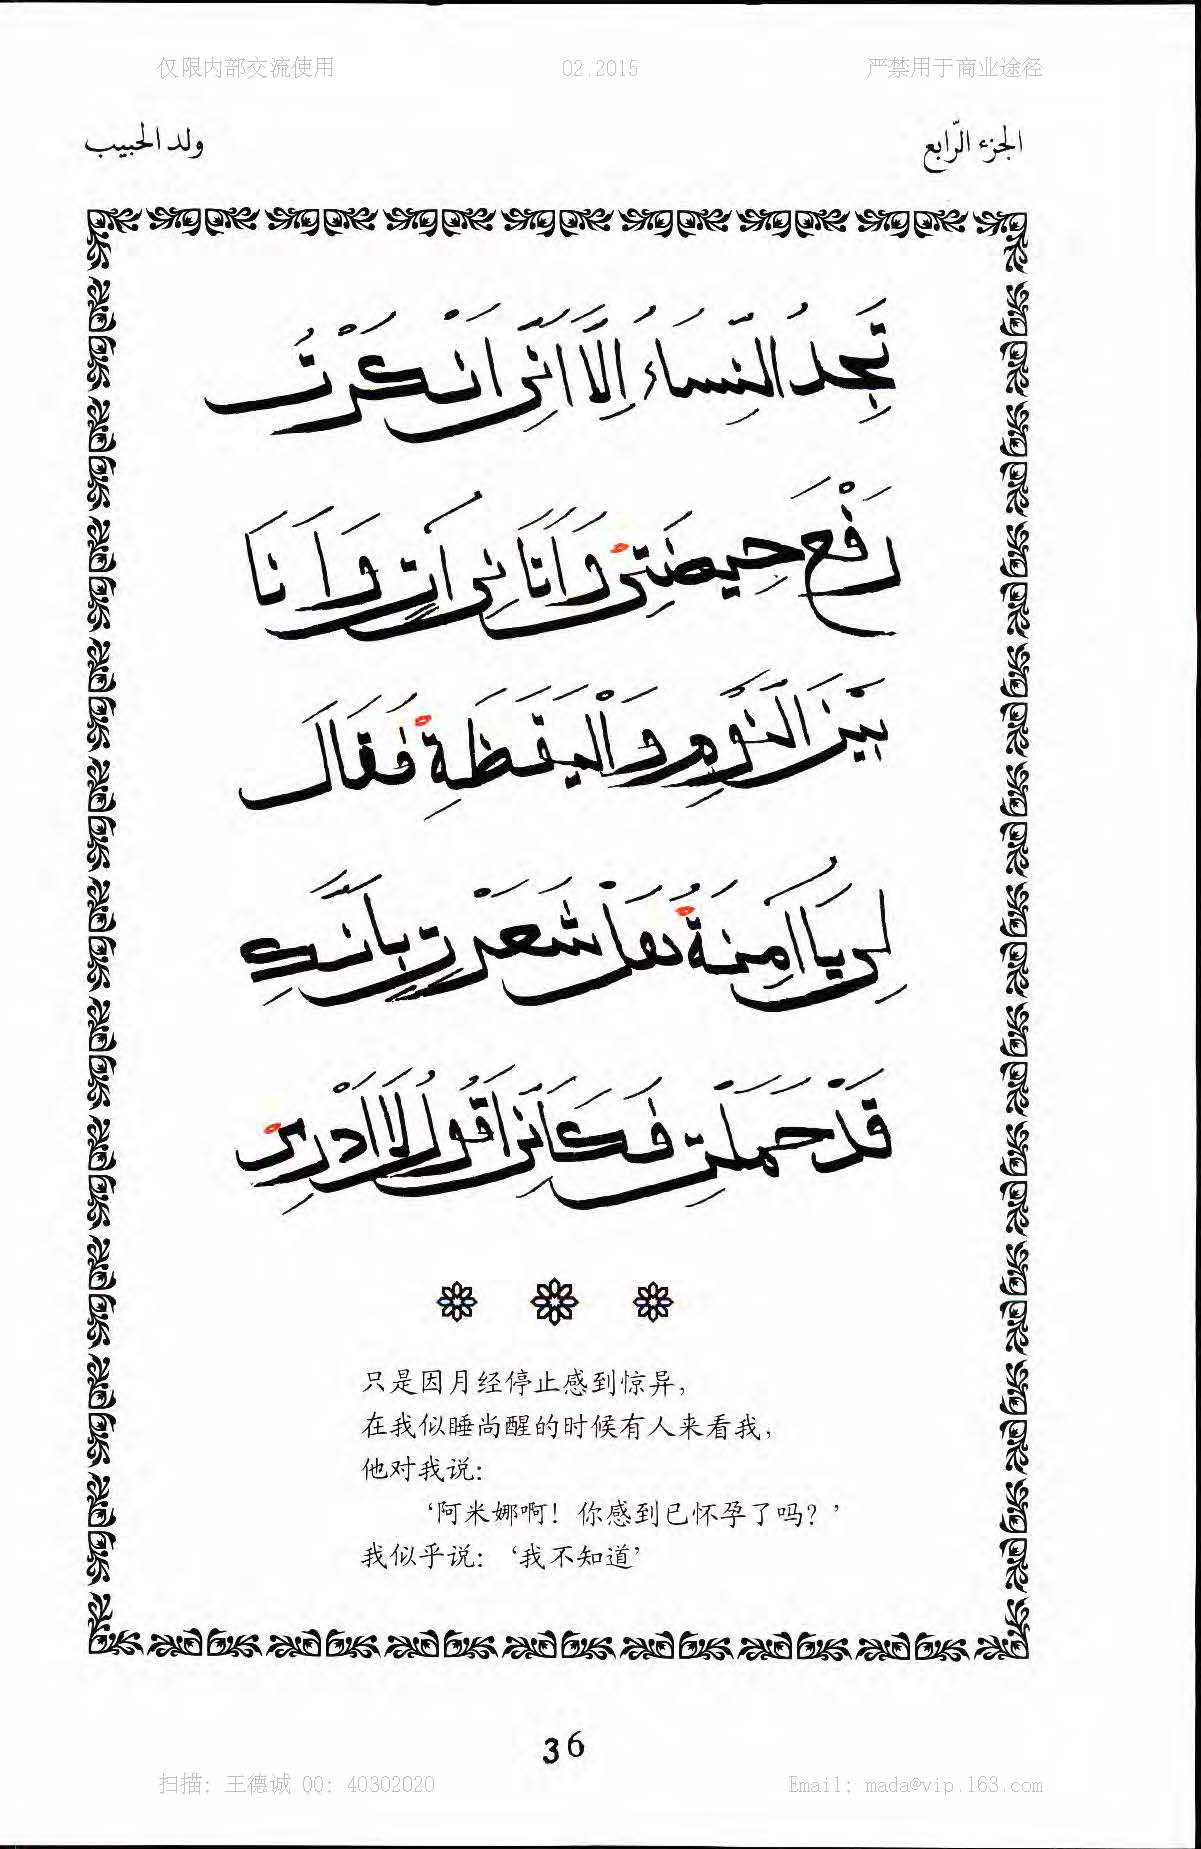 仅限内部交流使用 02.2015 严禁用于商业途径
الجزء الرّابع ولد الحبيب
تَجِدُ النِّسَاءُ اِلَّا اَنِّى اَنْكَرْتُ
رَفْعَ حِيضَتِى وَاَتَانِى اٰتٍ وَاَنَا
بَيْنَ النَّوْمِ وَالْيَقَظَةِ فَقَالَ
لِى يَا اٰمِنَةُ هَلْ شَعَرْتِ بِاَنَّكِ
قَدْ حَمَلْتِ فَكَاَنِّى اَقُولُ لَا اَدْرِى
只是因月经停止感到惊异，
在我似睡尚醒的时候有人来看我，
他对我说：
‘阿米娜啊！你感到已怀孕了吗？’
我似乎说：‘我不知道’
36
扫描：王德诚 QQ：40302020 Email：mada@vip.163.com